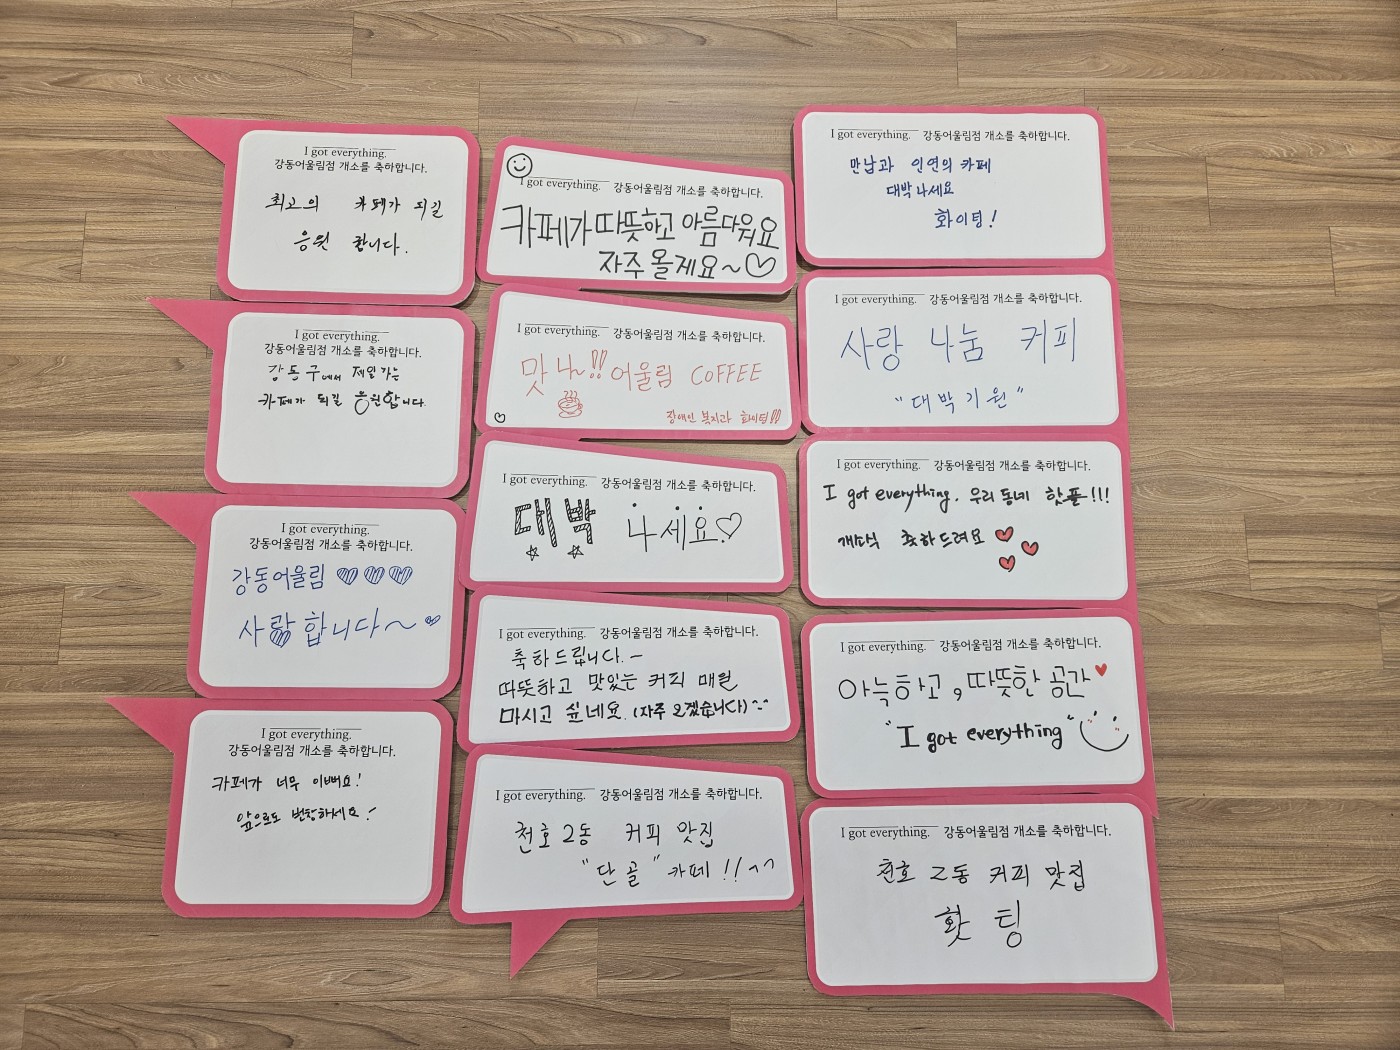 I got everything.
강동어울림점 개소를 축하합니다.
최고의 카페가 되길
응원 합니다.
I got everything.
강동어울림점 개소를 축하합니다.
강동구에서 제일가는
카페가 되길 응원합니다.
I got everything.
강동어울림점 개소를 축하합니다.
강동어울림
사랑합니다~
I got everything.
강동어울림점 개소를 축하합니다.
카페가 너무 이뻐요!
앞으로도 번창하세요!
I got everything. 강동어울림점 개소를 축하합니다.
카페가 따뜻하고 아름다워요
자주 올게요~♡
I got everything. 강동어울림점 개소를 축하합니다.
맛나~!! 어울림 COFFEE
장애인 복지과 화이팅!!
I got everything. 강동어울림점 개소를 축하합니다.
대박 나세요♡
I got everything. 강동어울림점 개소를 축하합니다.
축하드립니다.~
따뜻하고 맛있는 커피 매일
마시고 싶네요. (자주 오겠습니다)^-^
I got everything. 강동어울림점 개소를 축하합니다.
천호2동 커피 맛집
"단골" 카페!! ^^
I got everything. 강동어울림점 개소를 축하합니다.
만남과 인연의 카페
대박나세요
화이팅!
I got everything. 강동어울림점 개소를 축하합니다.
사랑 나눔 커피
"대박기원"
I got everything. 강동어울림점 개소를 축하합니다.
I got everything. 우리동네 핫플!!!
개소식 축하드려요
I got everything. 강동어울림점 개소를 축하합니다.
아늑하고, 따뜻한 공간
"I got everything"
I got everything. 강동어울림점 개소를 축하합니다.
천호 2동 커피 맛집
홧팅